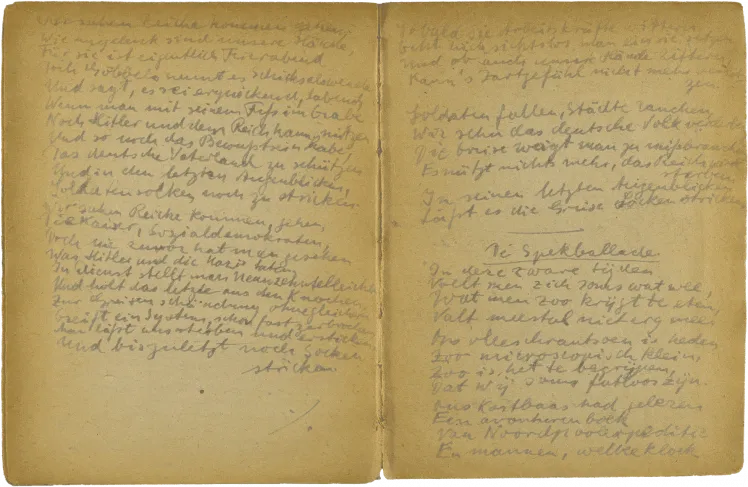 Wir sahen Reiche kommen, gehen,
Wie angelenk sind unsere Hände,
Für sie ist eigentlich Feierabend
Doch Göbbels nennt es Schicksalswende
Und sagt, es sei erquickend, labend,
Wenn man mit seinem Fuss im Grabe
Noch Hitler und dem Reich kann nützen
Und so noch das Bewusstsein habe,
Das deutsche Vaterland zu schützen
Und in den letzten Augenblicken,
Soldatensocken noch zu stricken.
Wir sahen Reiche kommen, gehen,
Die Kaiser, Sozialdemokraten,
Doch nie zuvor hat man gesehen
Was Hitler und die Nazis taten,
In Dienst stellt man
Und holt das letzte aus den Knochen,
Zur Greisen ohnegleichen
greift ein System, schon fast zerbrochen
man lässt uns sterben und ersticken
Und bis zuletzt noch Socken
stricken.
Arbeitskräfte
rücksichtslos man
Und ob auch unsere Hände zittern,
Kann's Zartgefühl nicht mehr
zen
Soldaten fallen, Städte rauchen,
Wir sehn das deutsche Volk verderben
Die Greise weigt man zu missbrauchen
Es nützt nichts mehr, das Reich
sterben
In seinen letzten Augenblicken
Lässt es die Greise Socken stricken
De Spekballade
In deze zware tijden
Voelt men zich soms wat wee,
Wat men zoo krijgt te eten,
Valt meestal niet erg mee
Ons vleeschrantsoen is heden
Zoo microscopisch klein,
Zoo is het te begrijpen,
Dat wij soms futloos zijn.
Ons Kostbaas had gelezen
Een avonturenboek
Van Noordpoolexpeditie
En mannen, welke kloek